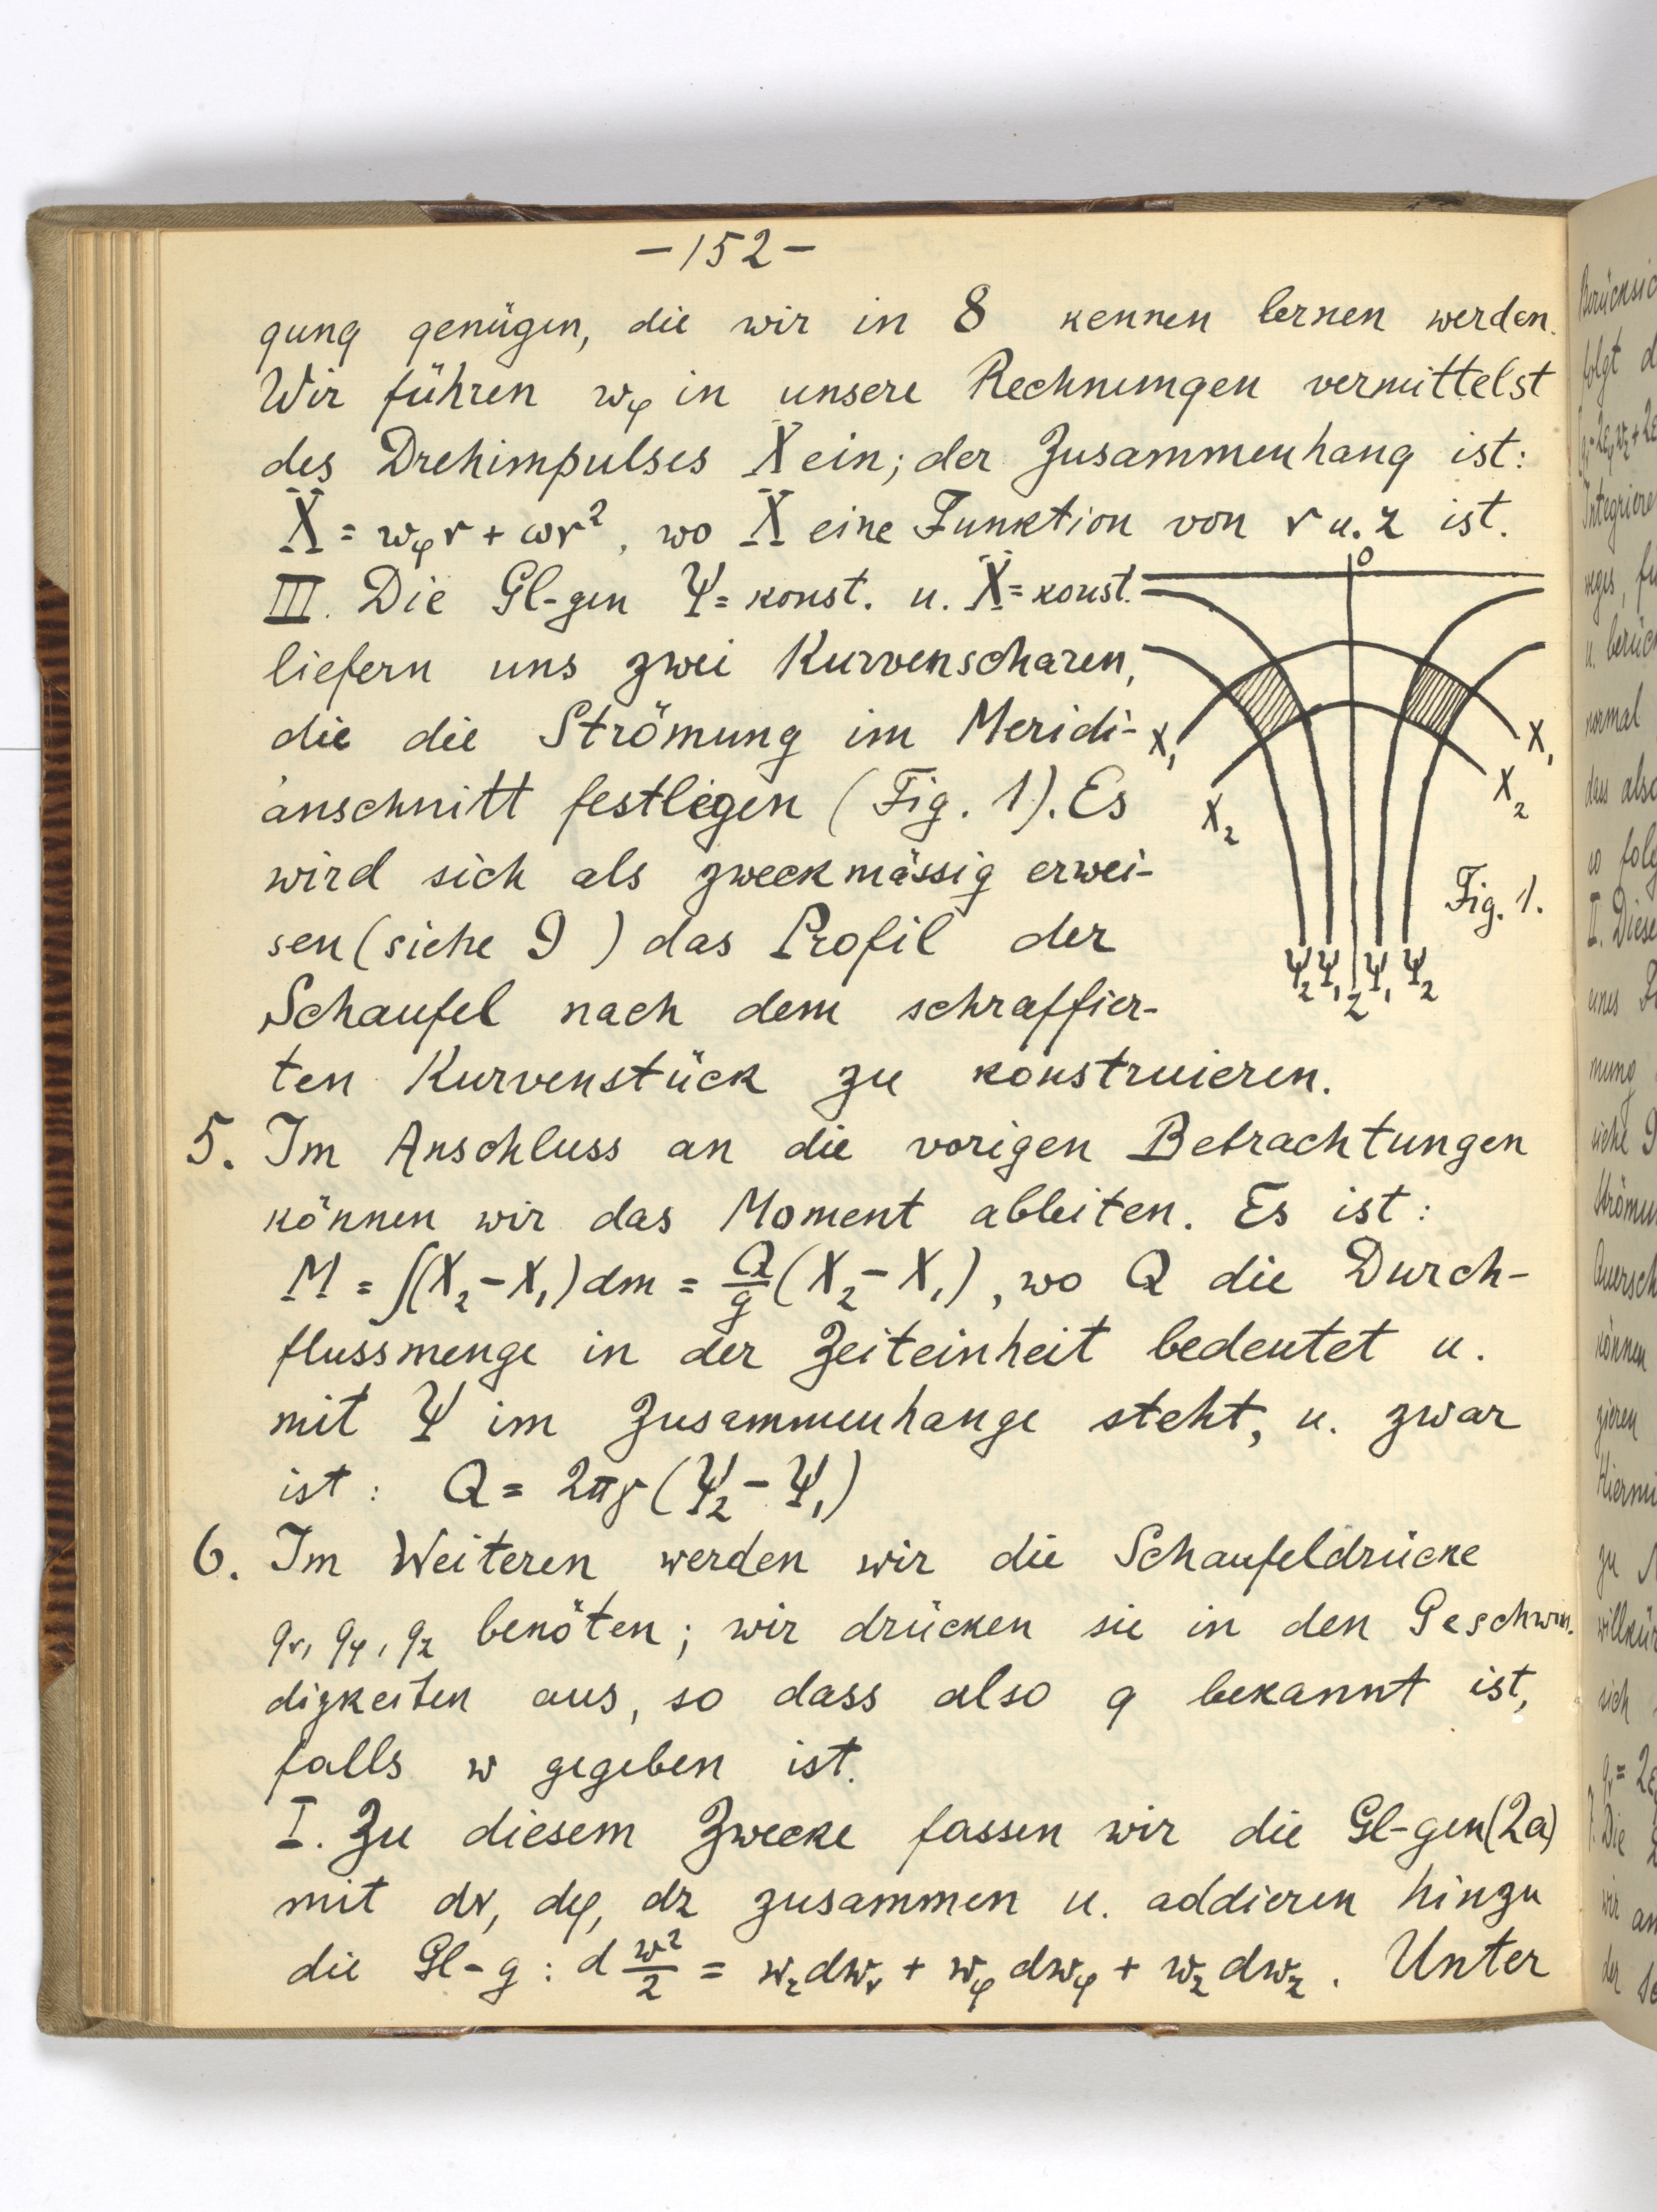 -152-
gung genügen, die wir in 8 kennen lernen werden.
Wir führen wφ in unsere Rechnungen vermittelst
des Drehimpulses X ein; der Zusammenhang ist:
X = wφr + ωr², wo X eine Funktion von r u. z ist.
III. Die Gl-gen Ψ = konst. u. X = konst.
liefern uns zwei Kurvenscharen,
die die Strömung im Meridi-
anschnitt festlegen (Fig. 1). Es
wird sich als zweckmässig erwei-
sen (siehe 9 ) das Profil der
Schaufel nach dem schraffier-
ten Kurvenstück zu konstruieren.
0
X₁
X₂
X₁
X₂
Fig. 1.
Ψ₂ Ψ₁ z Ψ₁ Ψ₂
5. Im Anschluss an die vorigen Betrachtungen
können wir das Moment ableiten. Es ist:
M = ∫(X₂ - X₁) dm = Q/g (X₂ - X₁), wo Q die Durch-
flussmenge in der Zeiteinheit bedeutet u.
mit Ψ im Zusammenhange steht, u. zwar
ist: Q = 2πγ (Ψ₂ - Ψ₁)
6. Im Weiteren werden wir die Schaufeldrücke
qr, qφ, qz benöten; wir drücken sie in den Geschwin-
digkeiten aus, so dass also q bekannt ist,
falls w gegeben ist.
I. Zu diesem Zwecke fassen wir die Gl-gen (2a)
mit dr, dφ, dz zusammen u. addieren hinzu
die Gl-g: d w²/2 = wr dwr + wφ dwφ + wz dwz. Unter